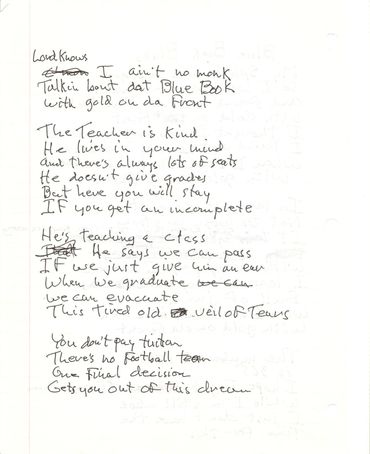 Lord Knows
I ain't no monk
Talkin bout dat Blue Book
with gold on da Front
The Teacher is Kind
He lives in your mind
and there's always lots of seats
He doesn't give grades
But here you will stay
If you get an incomplete
He's teaching a class
He says we can pass
If we just give him an ear
When we graduate we can
we can evacuate
This tired old veil of Tears
You don't pay tuition
There's no Football team
One Final decision
Gets you out of this dream